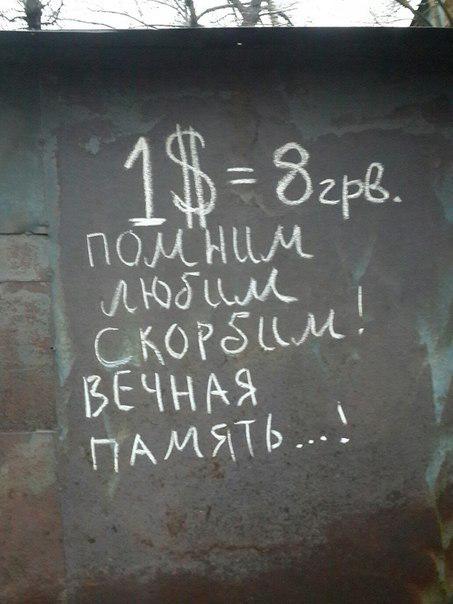 1$ = 8 грв.
ПОМНИМ
ЛЮБИМ
СКОРБИМ!
ВЕЧНАЯ
ПАМЯТЬ...!